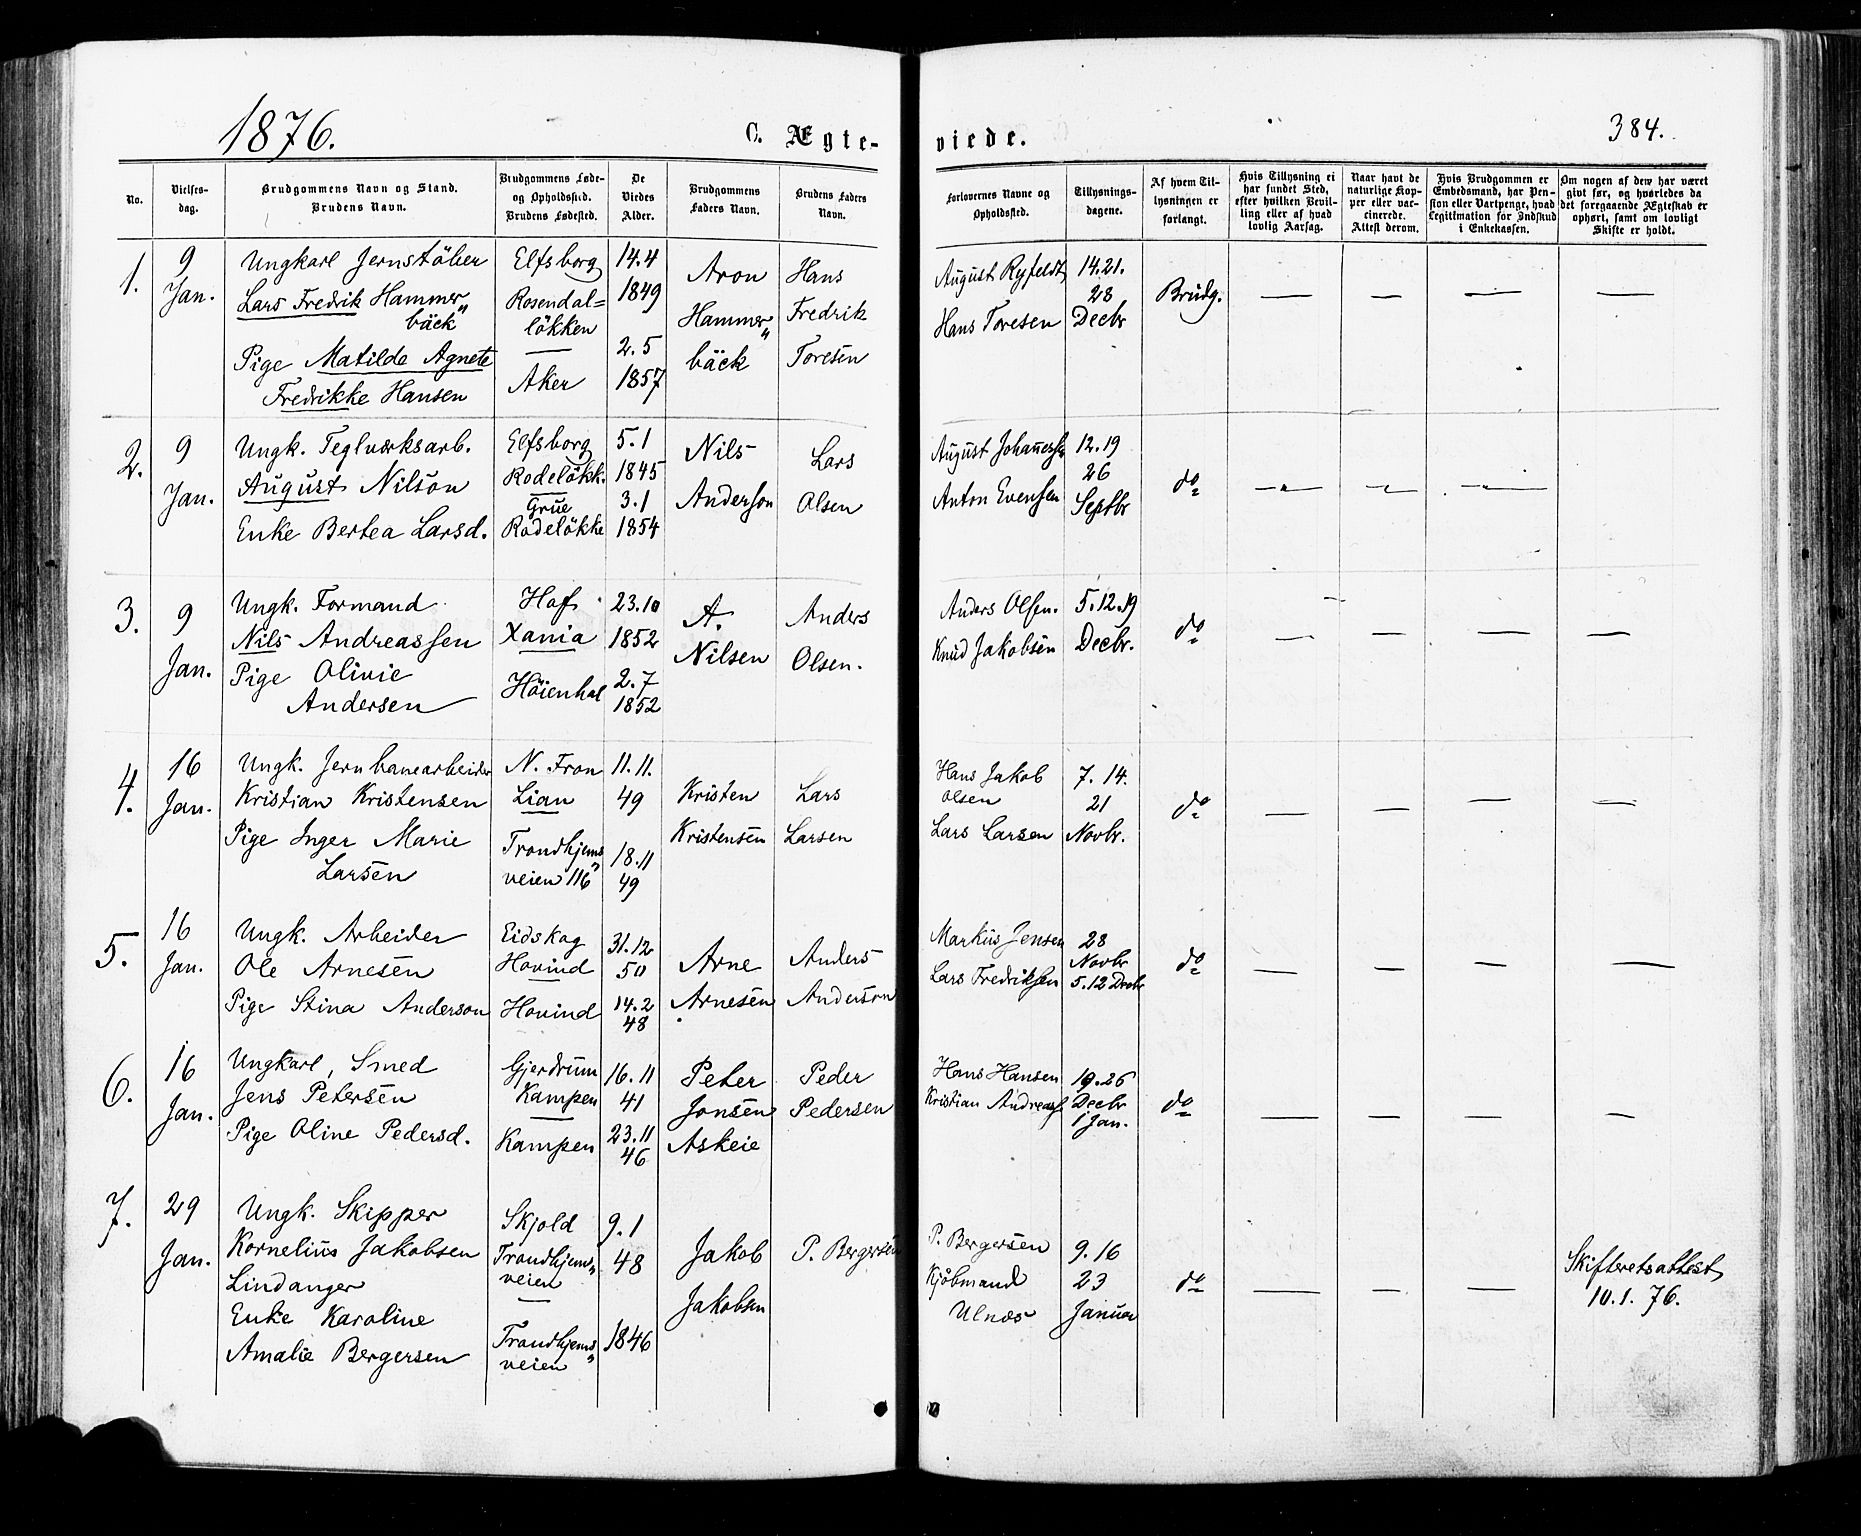 1876.
C. Ægte-
viede.
384.
No.
Vielses-
dag.
Brudgommens Navn og Stand.
Brudens Navn.
Brudgommens Føde-
og Opholdssted.
Brudens Fødested.
De
Viedes
Alder.
Brudgommens
Faders Navn.
Brudens Faders
Navn.
Forlovernes Navne og
Opholdssted.
Tillysnings-
dagene.
Af hvem Til-
lysningen er
forlangt.
Hvis Tillysning ei
har fundet Sted,
efter hvilken Bevil-
ling eller af hvad
lovlig Aarsag.
Naar havt de
naturlige Kop-
per eller vac-
cinerede.
Attest derom.
Hvis Brudgommen er
Embedsmand, har Pen-
sion eller Vartpenge, hvad
Legitimation for Indskud
i Enkekassen.
Om nogen af dem har været
givt før, og hvorledes da
det foregaaende Ægteskab er
ophørt, samt om lovligt
Skifte er holdt.
1.
9
Jan.
Ungkarl Jernstøber
Lars Fredrik Hammer„
bäck
Pige Matilde Agnete
Fredrikke Hansen
Elfsborg
Rosendal=
løkken
Aker
14.4
1849
2.5
1857
Aron
Hammer„
bäck
Hans
Fredrik
Toresen
August Ryfeldt
Hans Toresen
14.21.
28
Decbr
Brudg.
2.
9
Jan.
Ungk. Teglværksarb.
August Nilson
Enke Bertea Larsd.
Elfsborg
Rodeløkk.
Grue
Rodeløkke
5.1
1845
3.1
1854
Nils
Anderson
Lars
Olsen
August Johannesse
Anton Evensen
12.19
26
Septbr
do
3.
9
Jan.
Ungk. Formand
Nils Andreassen
Pige Olivie
Andersen
Hof
Xania
Høienhal
23.10
1852
2.7
1852
A.
Nilsen
Anders
Olsen.
Anders Olsen.
Knud Jakobsen
5.12.19
Decbr.
do
4.
16
Jan.
Ungk. Jernbanearbeider
Kristian Kristensen
Pige Inger Marie
Larsen
N. Fron
Lian
Trondhjems„
veien 116
11.11.
49
18.11
49
Kristen
Kristensen
Lars
Larsen
Hans Jakob
Olsen
Lars Larsen
7. 14.
21
Novbr.
do
5.
16
Jan.
Ungk. Arbeider
Ole Arnesen
Pige Stina Anderson
Eidskog
Hovind
Hovind
31.12
50
14.2
48
Arne
Arnesen
Anders
Anderson
Markus Jensen
Lars Fredriksen
28
Novbr
5.12 Decbr
do
6.
16
Jan.
Ungkarl, Smed
Jens Petersen
Pige Oline Pedersd.
Gjerdrum
Kampen
Kampen
16.11
41
23.11
46
Peter
Jonsen
Askeie
Peder
Pedersen
Hans Hansen
Kristian Andreass
19.26
Decbr
1 Jan.
do
7.
29
Jan.
Ungk. Skipper
Kornelius Jakobsen
Lindanger
Enke Karoline
Amalie Bergersen
Skjold
Trondhjems„
veien
Trondhjems„
veien
9.1
48
1846
Jakob
Jakobsen
P. Bergersen
P. Bergersen
Kjøbmand
Ulnæs
9.16
23
Januar
do
Skifteretsattest
10.1.76.